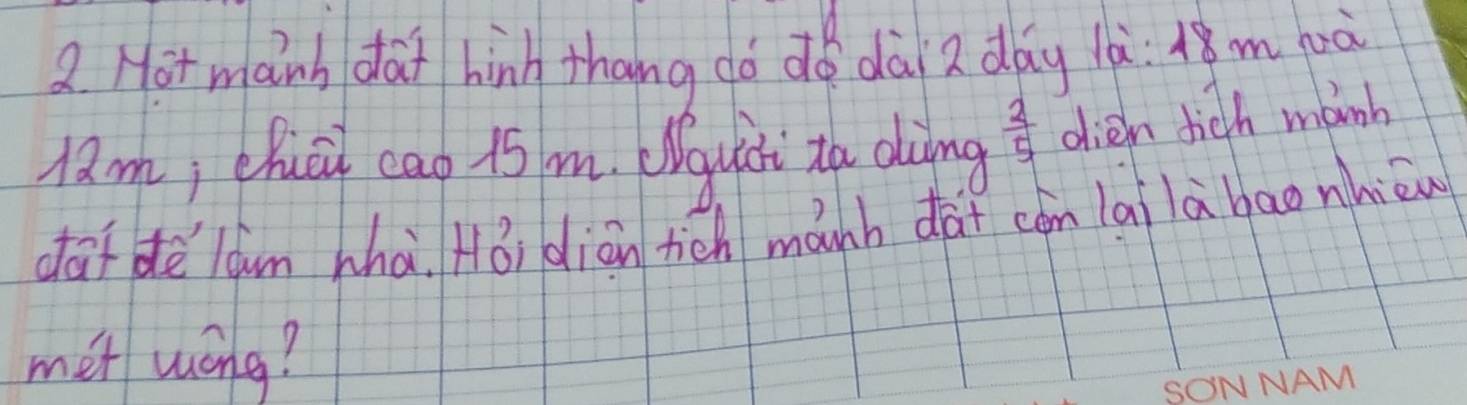 2. Một mảnh đất hình thang có độ dài 2 đáy là: 18 m và
12m; chiều cao 15 m. Người ta dùng 2/5 diện tích mảnh
đất để làm nhà. Hỏi diện tích mảnh đất còn lại là bao nhiêu
mét vuông?
SON NAM